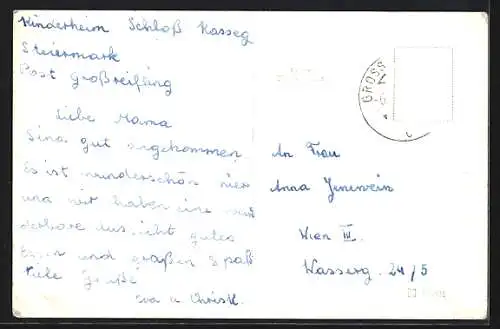 Kinderheim Schloß Kasseg
Steiermark
Post Großreifling
Liebe Mama
Sind gut angekommen
Es ist wunderschön hier
und wir haben eine wun
derbare Aussicht gutes
Essen und großen Spaß
Viele Grüße
Eva u. Christl.
GROSS
An Frau
Anna Jenewein
Wien III.
Wasserg. 24/5